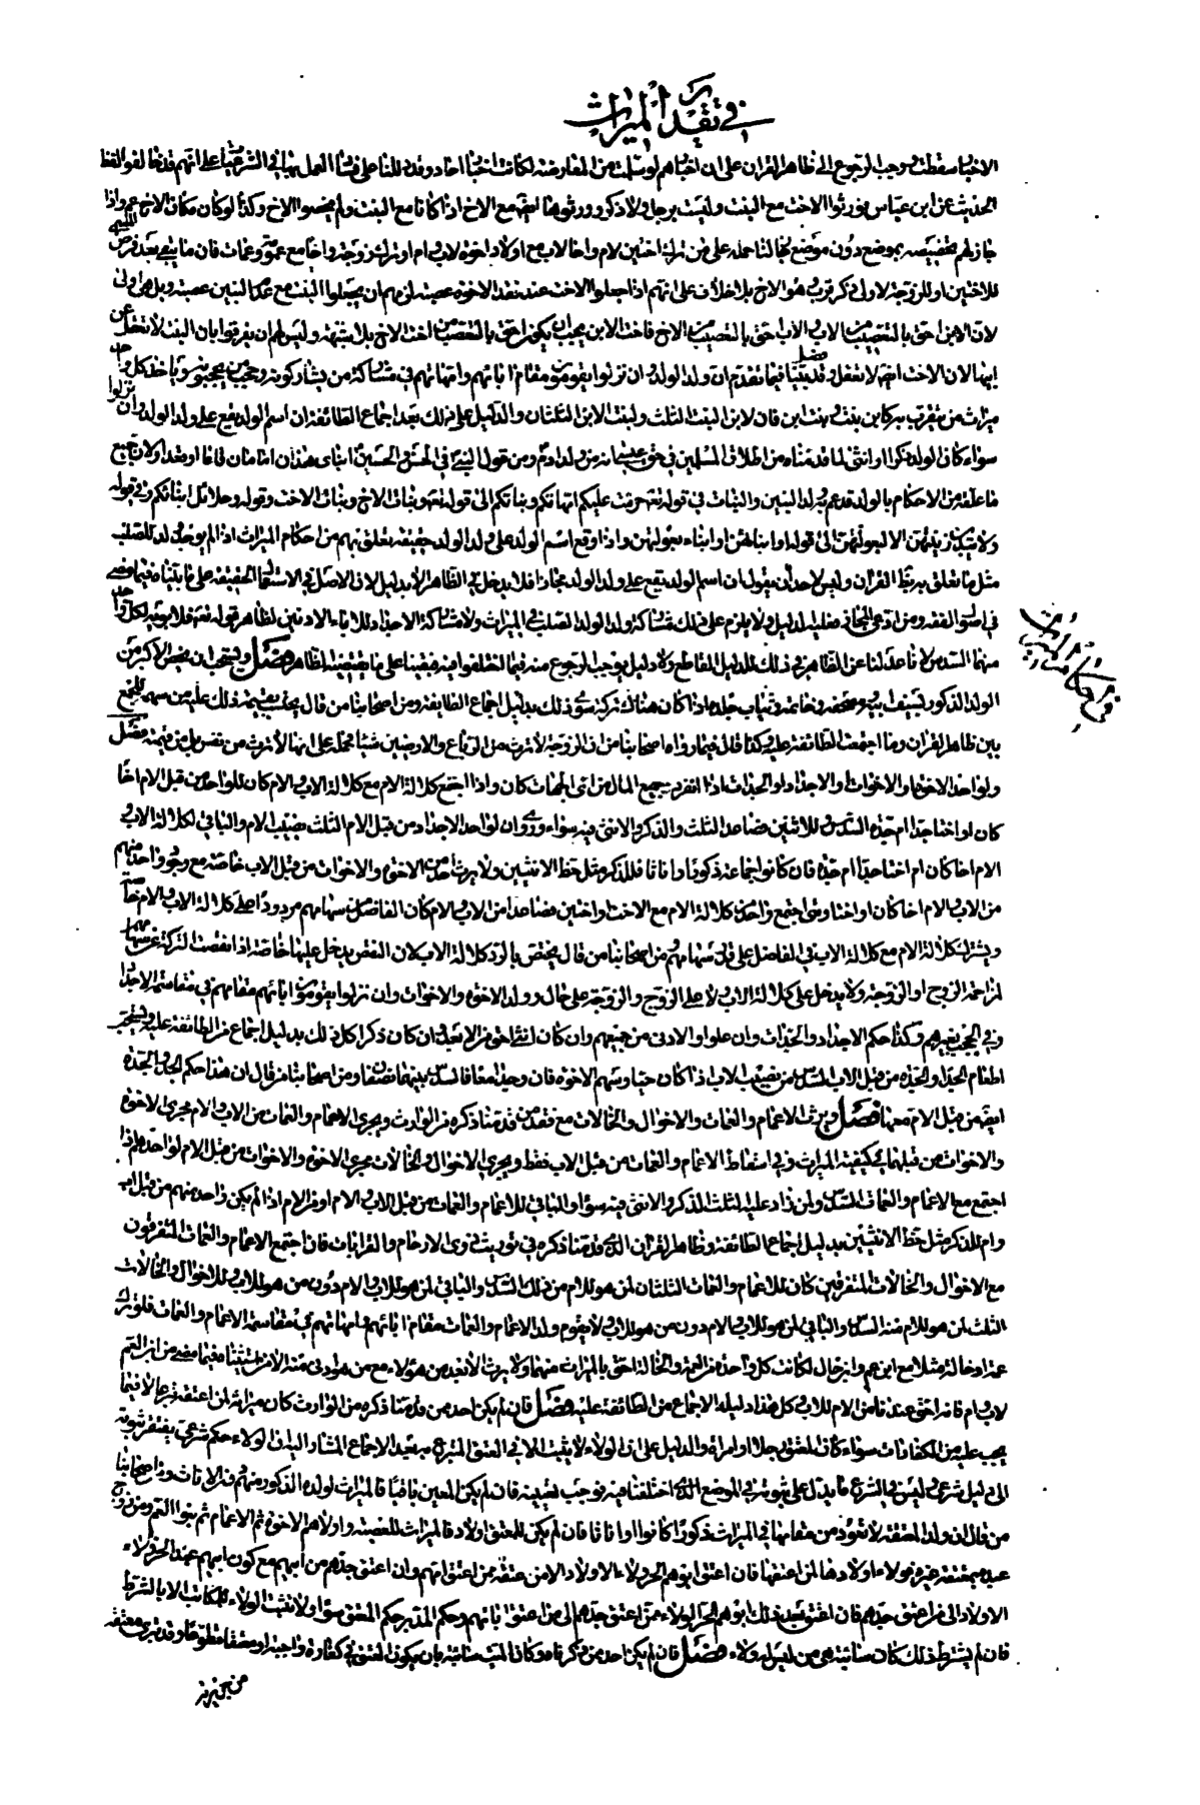 في تقدير الميراث
الاخبار سقطت ووجب الرجوع الى ظاهر القران على ان اخبارهم لو سلمت من المعارضة لكانت اخبار احاد وقد دللنا على فساد العمل بها في الشرعيات على انهم قد خالفوا لفظ
الحديث عن ابن عباس فورثوا الاخت مع البنت وليست برجل ولا ذكر وورثوها ايضا مع الاخ اذا كانا مع البنت ولم يخصوا الاخ وكذا لو كان مكان الاخ عم واذا
جاز لهم تخصيصه بموضع دون موضع جاز لنا حمله على من ترك اختين لام واخا لاب مع اولاد اخوة لاب وام او ترك زوجة واخا مع عمومة وعمات فان ما يبقى بعد فرض
للاختين او للزوجة لاولى ذكر قرب هو الاخ بلا خلاف على انهم اذا جعلوا الاخت عند فقد الاخوة عصبة لزمهم ان يجعلوا البنت مع عدم البنين عصبة وبل هي اولى
لان الابن احق بالتعصيب من الاب والاب احق بالتعصيب من الاخ فاخت الابن يجب ان يكون احق بالتعصيب من اخت الاخ بلا شبهة وليس لهم ان يفرقوا بان البنت لا تعقل عن
ابيها لان الاخت ايضا لا تعقل وقد بينا فيما تقدم ان ولد الولد وان نزلوا يقومون مقام ابائهم وامهاتهم في مشاركة من يشاركونه وحجب من يحجبونه وياخذ كل واحد
ميراث من يتقرب به كابن بنت وبنت ابن فان لابن البنت الثلث ولبنت الابن الثلثان والدليل على ذلك بعد اجماع الطائفة ان اسم الولد يقع على ولد الولد وان نزلوا
سواء كان الولد ذكرا او انثى لما قدمناه من اطلاق المسلمين في عيسى انه من ولد ادم ومن قول النبي في الحسن والحسين ابناي هذان امامان قاما او قعدا ولان جميع
ما علقه من الاحكام بالولد قد عم به ولد البنين والبنات في قوله تعه حرمت عليكم امهاتكم وبناتكم الى قوله تعه وبنات الاخ وبنات الاخت وقوله وحلائل ابنائكم وفي قوله
ولا يبدين زينتهن الا لبعولتهن الى قوله او ابنائهن او ابناء بعولتهن واذا وقع اسم الولد على ولد الولد حقيقة تعلق بهم من احكام الميراث اذا لم يوجد ولد للصلب
مثل ما تعلق به بظ القران وليس لاحد ان يقول ان اسم الولد يقع على ولد الولد مجازا فلا يدخل في الظاهر الا بدليل لان الاصل في الاستعمال الحقيقة على ما بيناه فيما مضى
في اصول الفقه ومن ادعى المجاز فعليه الدليل ولا يلزم على ذلك مشاركة ولد الولد لصلب في الميراث ولا مشاركة الاجداد للاباء الادنين لظاهر قوله تعه فلابويه لكل واحد
منهما السدس لانا عدلنا عن الظاهر في ذلك للدليل القاطع ولا دليل يوجب الرجوع عنه فيما اختلفوا فيه فبقينا على ما يقتضيه الظاهر فصل ويستحب ان يخص الاكبر من
الولد الذكور بسيف ابيه ومصحفه وخاتمه وثياب جلده اذا كان هناك تركة سوى ذلك بدليل اجماع الطائفة ومن اصحابنا من قال يحتسب بقيمة ذلك عليه من سهمه للجمع
بين ظاهر القران وما اجمعت الطائفة عليه وكذا قال فيما رواه اصحابنا من ان الزوجة لا ترث من الرباع والارضين شيئا فحمله على انها لا ترث من نفس بل من قيمته فصل
ولواحد الاخوة والاخوات او الاجداد او الجدات اذا انفرد جميع المال من اي الجهات كان واذا اجتمع كلالة الام مع كلالة الاب والام كان للواحد من قبل الام اخا
كان او اختا جدا ام جدة السدس وللاثنين فصاعدا الثلث والذكر والانثى فيه سواء وروي ان لواحد الاجداد من قبل الام الثلث نصيب الام والباقي لكلالة الاب و
الام اخا كان ام اختا جدا ام جدة فان كانوا جماعة ذكورا واناثا فللذكر مثل حظ الانثيين ولا يرث احد من الاخوة والاخوات من قبل الاب خاصة مع وجود واحد منهم
من الاب والام اخا كان او اختا ومتى اجتمع واحد من كلالة الام مع الاخت او اختين فصاعدا من الاب والام كان الفاضل من سهامهم مردودا على كلالة الاب والام خاصة
ويشترك كلالة الام مع كلالة الاب في الفاضل على قدر سهامهم ومن اصحابنا من قال يختص بالرد كلالة الاب لان النقص يدخل عليها خاصة اذا نقصت التركة عن سهامهم
لمزاحمة الزوج او الزوجة ولا يدخل على كلالة الاب ولا على الزوج والزوجة على حال وولد الاخوة والاخوات وان نزلوا يقومون مقام ابائهم مقامهم في مقاسمة الاجداد
وفي الحجب لغيرهم وكذا حكم الاجداد والجدات وان علوا والادنى من جميعهم وان كان انثى احق من الابعد وان كان ذكرا كل ذلك بدليل اجماع من الطائفة عليه ويستحب
اطعام الجد والجدة من قبل الاب السدس من نصيب الاب اذا كان حيا وسهم الاخوة فان وجدا معا فالسدس بينهما نصفان ومن اصحابنا من قال ان هذا حكم الجد والجدة
ايضا من قبل الام معها فصل ويرث الاعمام والعمات والاخوال والخالات مع فقد من قدمنا ذكره من الوارث ويجري الاعمام والعمات من الاب والام مجرى الاخوة
والاخوات من قبلهما في كيفية الميراث وفي اسقاط الاعمام والعمات من قبل الاب فقط ويجري الاخوال والخالات مجرى الاخوة والاخوات من قبل الام لواحدهم اذا
اجتمع مع الاعمام والعمات السدس ولمن زاد عليه الثلث الذكر والانثى فيه سواء والباقي للاعمام والعمات من قبل الاب والام او من الام اذا لم يكن واحد منهم من قبل اب
وام للذكر مثل حظ الانثيين بدليل اجماع الطائفة وظاهر القران الذي قدمنا ذكره في توريث ذوي الارحام والقرابات فان اجتمع الاعمام والعمات المتفرقون
مع الاخوال والخالات المتفرقين كان للاعمام والعمات الثلثان لمن هو للام من ذلك السدس والباقي لمن هو للاب والام دون من هو للاب وللاخوال والخالات
الثلث لمن هو للام منه السدس والباقي لمن هو للاب والام دون من هو للاب ولا يقوم ولد الاعمام والعمات مقام ابائهم وامهاتهم في مقاسمة الاعمام والعمات فلو ترك
عمة او خالة مثلا مع ابن عم وابن خال لكانت كل واحدة من العمة والخالة احق بالميراث منهما ولا يرث الابعد من هؤلاء مع من هو ادنى منه الا من استثنيناه فيما مضى من ابن العم
لاب وام فانه احق عندنا من الام للاب وكل هذا دليله الاجماع من الطائفة عليه فصل فان لم يكن احد من قدمنا ذكره من الوارث كان ميراثه لمن اعتقه تبرعا لا فيما
يجب عليه من الكفارات سواء كان المعتق رجلا او امراة والدليل على ان الولاء لا يثبت الا في العتق المتبرع به بعد الاجماع المشار اليه ان الولاء حكم شرعي يفتقر ثبوته
الى دليل شرعي وليس في الشرع ما يدل على ثبوته في الموضع الذي اختلفنا فيه فوجب نفيه فان لم يكن المعتق باقيا فالميراث لولده الذكور منهم دون الاناث ومن اصحابنا
من قال ان ولد المعتقة لا تقوم من مقامها في الميراث ذكورا كانوا او اناثا فان لم يكن للمعتق اولاد فالميراث للعصبة واولاهم الاخوة ثم الاعمام ثم بنوا العم ومن زوج
عبده بمعتقة غيره فولاء اولادها لمن اعتقها فان اعتق ابوهم انجر ولاء الاولاد الى من عتقه من اعتق امهم وان اعتق جدهم من ابيهم مع كون ابيهم عبدا انجر ولاء
الاولاد الى من اعتق جدهم فان اعتق بعد ذلك ابوهم انجر الولاء عمن اعتق جدهم الى من اعتق اباهم وحكم المدبر حكم المعتق سواء ولا يثبت الولاء على المكاتب الا بالشرط
فان لم يشترط ذلك كان سائبة وهي من ليس له ولاء فصل فان لم يكن احد ممن ذكرناه وكان الميت سائبة بان يكون اعتق في كفارة واجبة او معتقا تطوعا وقد تبرء معتقه
من جريرته
في احكام الميراث